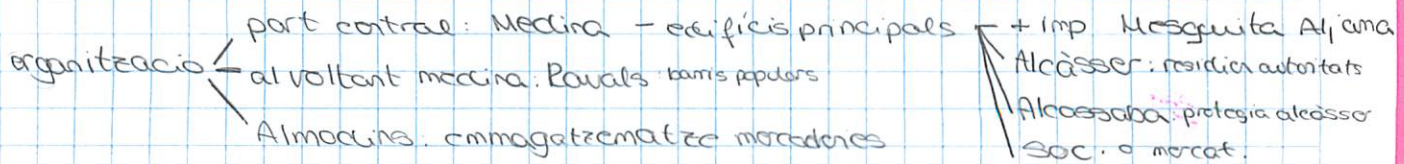 organització
part central: Medina - edificis principals
al voltant medina: Ravals: barris populars
Almodins: emmagatzematze mercaderies
+ imp Mesquita Aljama
Alcàsser: residien autoritats
Alcassaba: protegia alcàsser
Soc. o mercat.